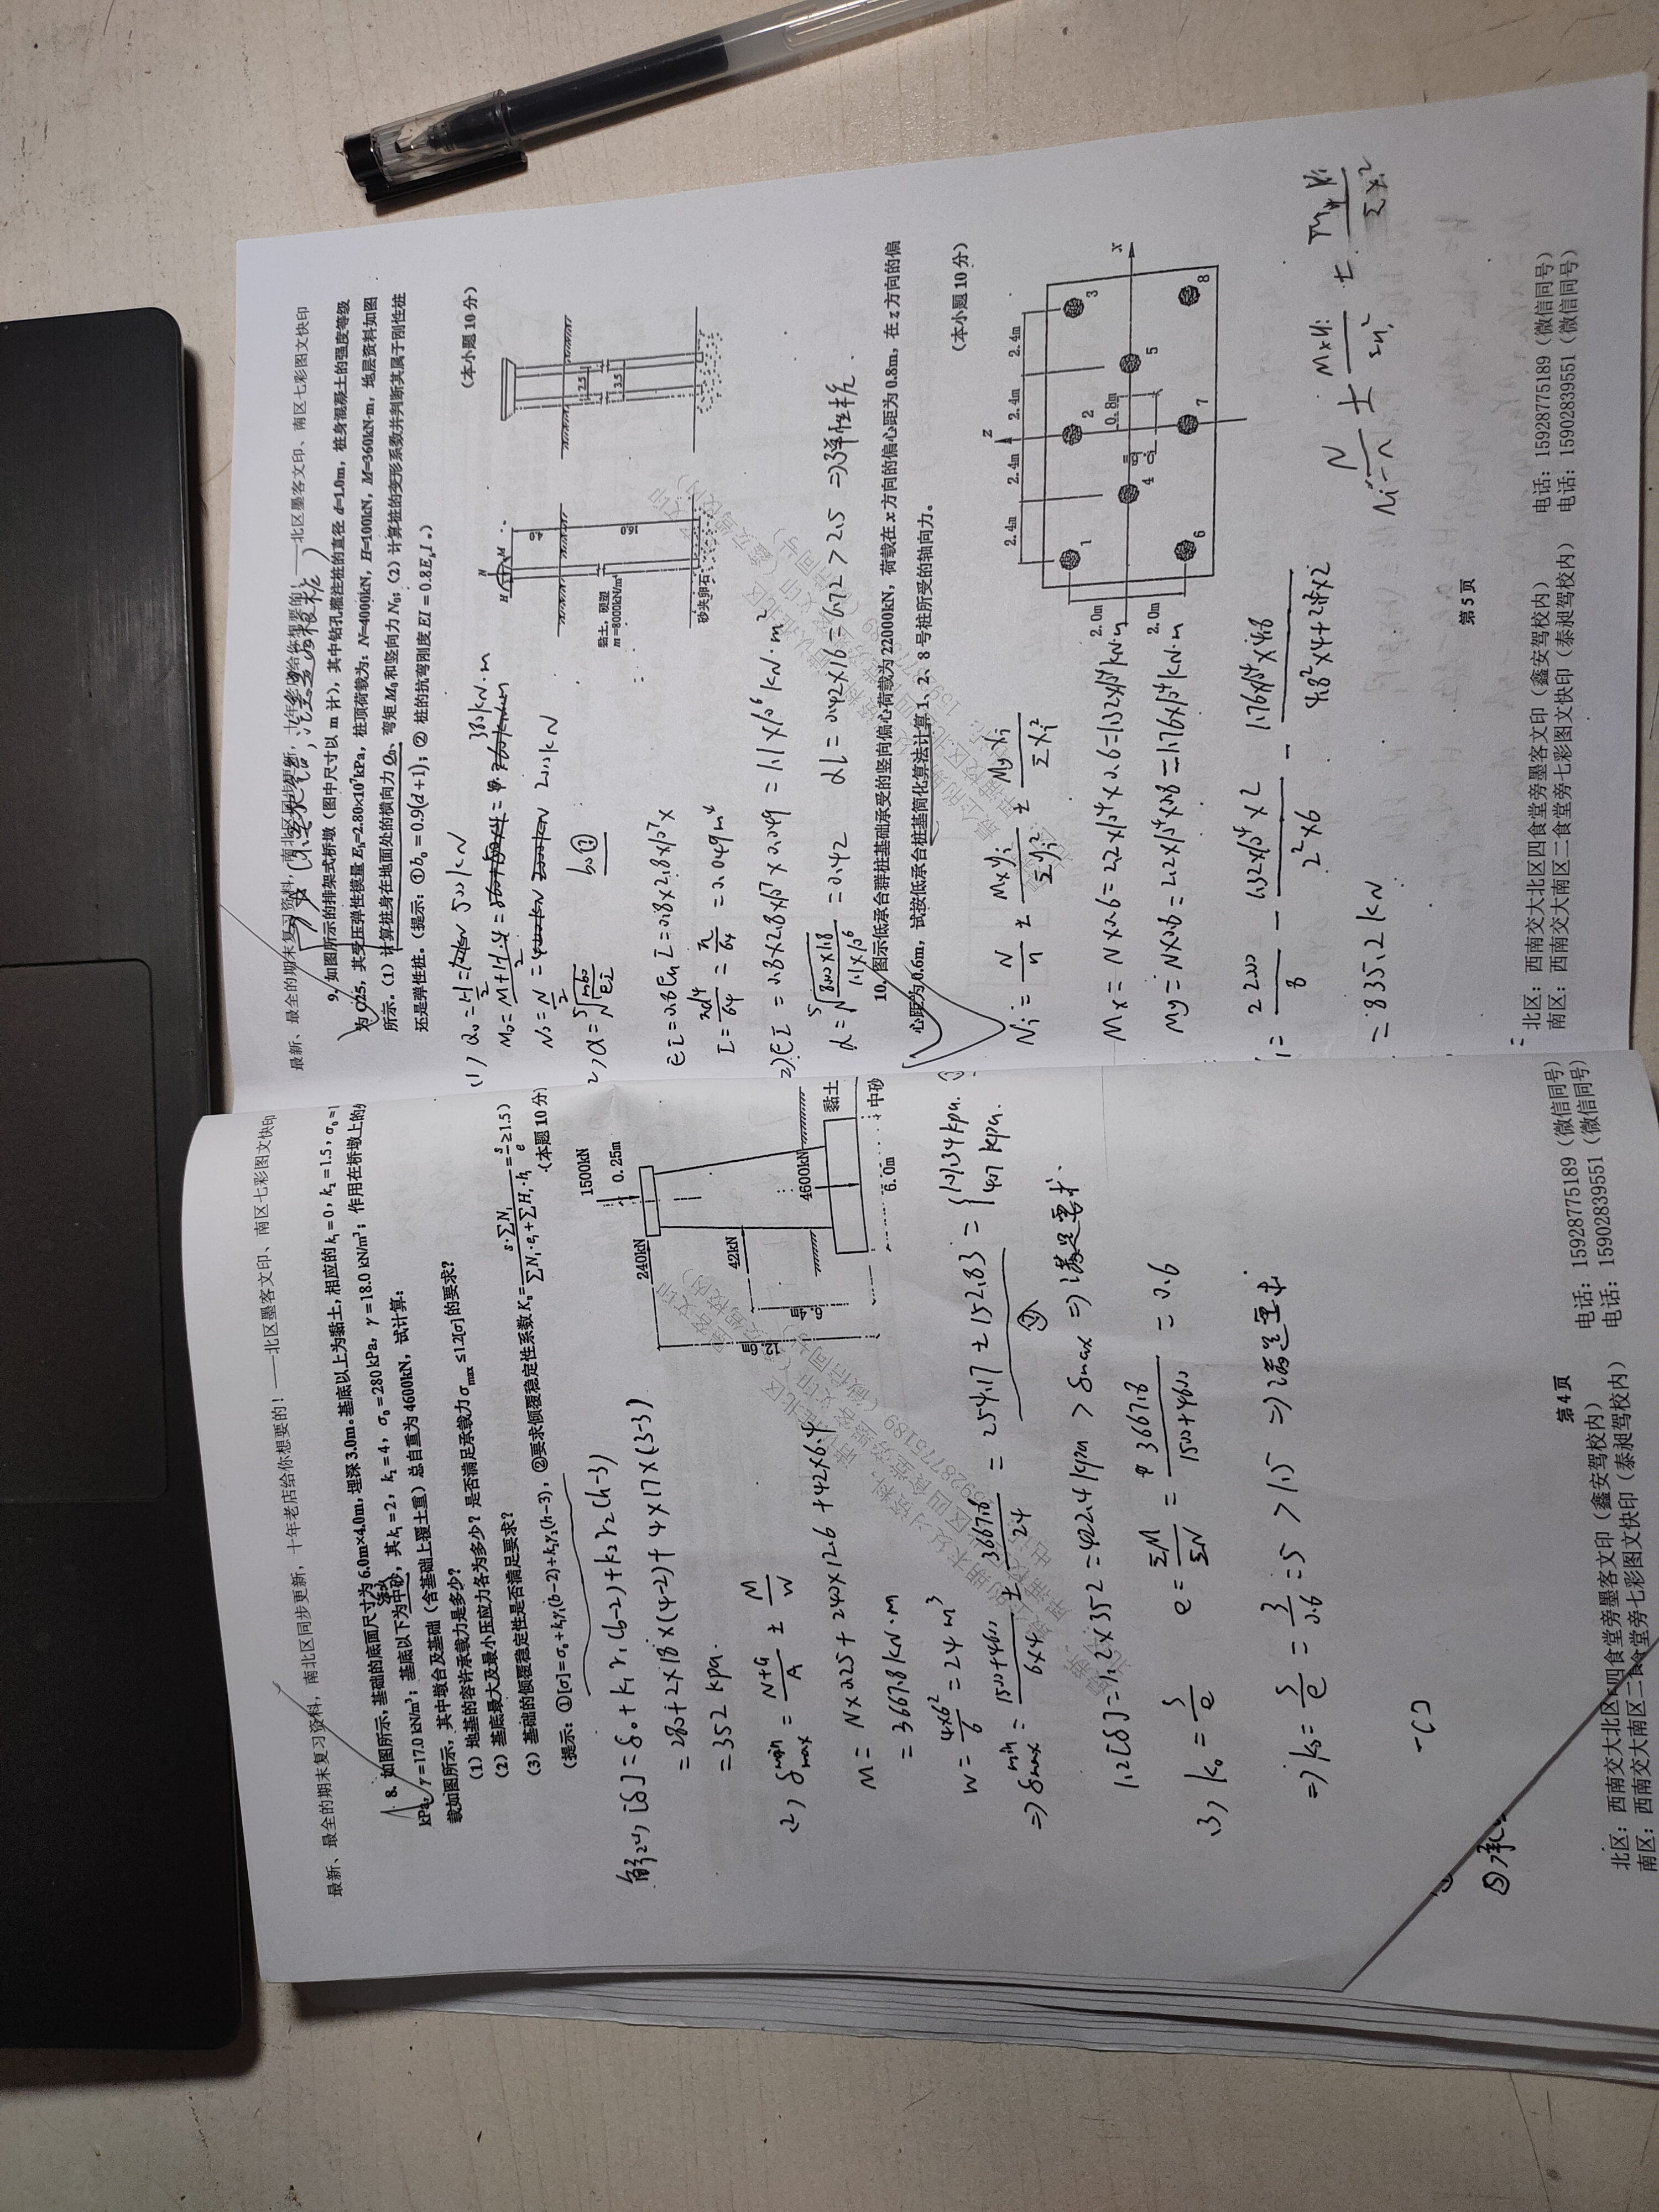 最新、最全的期末复习资料，南北区同步更新，十年老店给你想要的！——北区墨客文印、南区七彩图文快印
8. 如图所示，基础的底面尺寸为 6.0m×4.0m，埋深 3.0m。基底以上为黏土，相应的 k₁=0，k₂=1.5，σ₀=1
kPa，γ=17.0 kN/m³；基底以下为中砂，其 k₁=2，k₂=4，σ₀=280 kPa，γ=18.0 kN/m³；作用在桥墩上的
载如图所示，其中墩台及基础（含基础上覆土重）总自重为 4600kN，试计算：
(1) 地基的容许承载力是多少？
(2) 基底最大及最小压应力各为多少？是否满足承载力 σmax ≤1.2[σ] 的要求？
(3) 基础的倾覆稳定性是否满足要求？
(提示：①[σ]=σ₀+k₁γ₁(b−2)+k₂γ₂(h−3)，②要求倾覆稳定性系数 K₀=s·∑Nᵢ/(∑Nᵢ·eᵢ+∑Hᵢ·hᵢ)=s/e≥1.5)
(本题 10 分)
1500kN
0.25m
240kN
42kN
4600kN
黏土
中砂
6.0m
解：(1) [δ]=δ₀+k₁γ₁(b-2)+k₂γ₂(h-3)
=280+2×18×(4-2)+4×17×(3-3)
=352 kpa.
(2) δ min max = N+G/A ± M/W
M = N×0.25+240×12.6+42×6.4
=3667.8 kN·m
W=4×6²/6=24 m³
=> δ min max = 1500+4600/6×4 ± 3667.8/24 = 254.17±152.83 = {101.34 kpa. 407 kpa.
1.2[δ]=1.2×352=422.4 kpa > δmax => 满足要求.
(3) k₀=s/e e=ΣM/ΣN=3667.8/1500+4600=0.6
=> k₀=s/e=3/0.6=5 >1.5 => 满足要求
第 4 页
北区：西南交大北区四食堂旁墨客文印（鑫安驾校内） 电话：15928775189（微信同号）
南区：西南交大南区二食堂旁七彩图文快印（泰昶驾校内） 电话：15902839551（微信同号）
最新、最全的期末复习资料，南北区同步更新，十年老店给你想要的！——北区墨客文印、南区七彩图文快印
9. 如图所示的排架式桥墩（图中尺寸以 m 计），其中钻孔灌注桩的直径 d=1.0m，桩身混凝土的强度等级
为 C25，其受压弹性模量 Eₕ=2.80×10⁷kPa，桩顶荷载为：N=4000kN，H=100kN，M=360kN·m，地层资料如图
所示。(1) 计算桩身在地面处的横向力 Q₀、弯矩 M₀ 和竖向力 N₀；(2) 计算桩的变形系数并判断其属于刚性桩
还是弹性桩。(提示：①b₀=0.9(d+1)；② 桩的抗弯刚度 EI=0.8EₕI。)
(本小题 10 分)
N
H
M
黏土，硬塑
m=8000kN/m⁴
砂夹卵石
2.5
3.5
N₀=N/2= 2000kN
EI=0.8EₕI=0.8×2.8×10⁷×
I=πd⁴/64=π/64=0.049m⁴
EI=0.8×2.8×10⁷×0.049=1.1×10⁶kN·m²
αl=0.42×16=6.72>2.5 =>弹性桩.
10. 图示低承台群桩基础承受的竖向偏心荷载为 22000kN，荷载在 x 方向的偏心距为 0.8m，在 z 方向的偏
心距为 0.6m，试按低承台桩基简化算法计算 1、2、8 号桩所受的轴向力。
(本小题 10 分)
2.4m 2.4m 2.4m 2.4m
2.0m
2.0m
0.8m
z
x
1 2 3
4 5
6 7 8
Ni=N/n ± Mxyi/Σyi² ± Myxi/Σxi²
Mx=N×0.6=2.2×10⁴×0.6=1.32×10⁴kN·m
My=N×0.8=2.2×10⁴×0.8=1.76×10⁴kN·m
=835.2kN
第 5 页
北区：西南交大北区四食堂旁墨客文印（鑫安驾校内） 电话：15928775189（微信同号）
南区：西南交大南区二食堂旁七彩图文快印（泰昶驾校内） 电话：15902839551（微信同号）